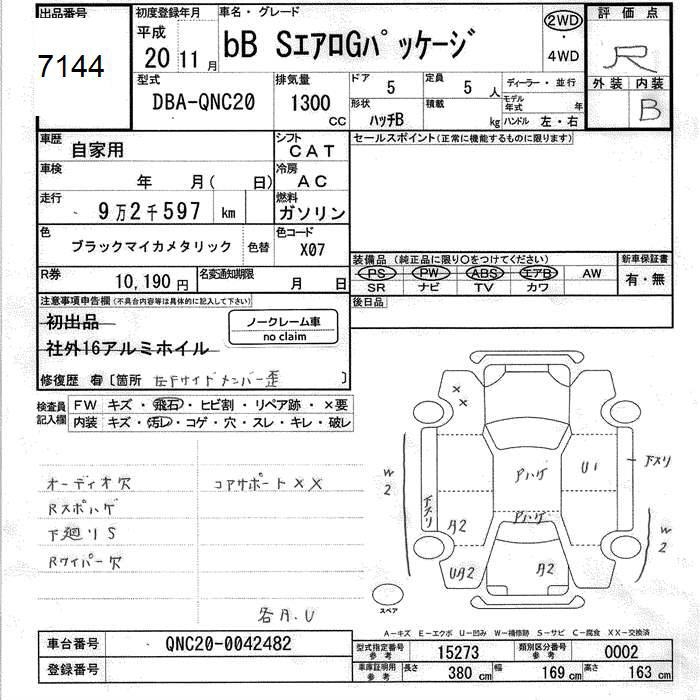 出品番号
7144
初度登録年月
平成
20 11 月
車名・グレード
bB SエアロGパッケージ
2WD
・
4WD
評価点
R
外装 内装
B
型式
DBA-QNC20
排気量
1300
CC
ドア
5
定員
5 人
ディーラー・並行
形状
ハッチB
積載
kg
モデル
年式 年
ハンドル 左・右
車歴
自家用
シフト
CAT
車検
年 月( 日)
冷房
AC
走行
9万2千597 km
燃料
ガソリン
色
ブラックマイカメタリック
色替
色コード
X07
R券
10,190円
名変通知期限
月 日
セールスポイント(正常に機能するものに限ります)
装備品 (純正品に限り○をつけてください)
PS PW ABS エアB AW
SR ナビ TV カワ
新車保証書
有・無
後日品
注意事項申告欄(不具合内容等は具体的に記入して下さい)
初出品
社外16アルミホイル
ノークレーム車
no claim
修復歴 有 [箇所 左Fサイドメンバー歪 ]
検査員
記入欄
FW キズ・飛石・ヒビ割・リペア跡・×要
内装 キズ・汚レ・コゲ・穴・スレ・キレ・破レ
オーディオ欠
コアサポートXX
Rスポハゲ
下廻りS
Rワイパー欠
各A.U
×
×
W
2
下スリ
A2
UA2
Aハゲ
Aハゲ
A2
U1
下スリ
W
2
スペア
A-キズ E-エクボ U-凹み W-補修跡 S-サビ C-腐食 XX-交換済
車台番号
QNC20-0042482
登録番号
型式指定番号
参考
15273
類別区分番号
参考
0002
車庫証明用
参考
長さ 380 cm 幅 169 cm 高さ 163 cm